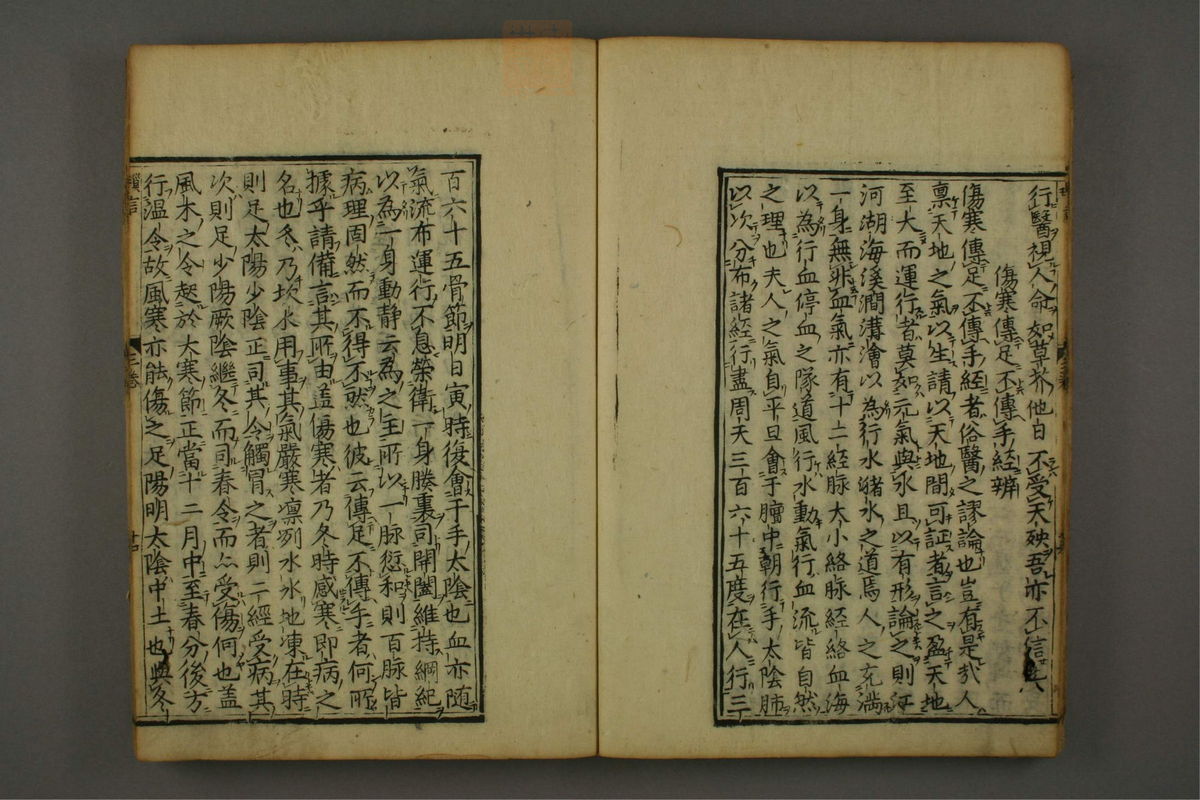 行醫視人命如草芥他日不受天殃吾亦不信矣
傷寒傳足不傳手經辨
傷寒傳足不傳手經者俗醫之謬論也豈有是哉人
禀天地之氣以生請以天地間可証者言之盈天地
至大而運行者莫如元氣與水且以有形論之則江
河湖海溪澗溝澮以為行水豬水之道焉人之充滿
一身無非血氣亦有十二經脉大小絡脉經絡血海
以為行血停血之隊道風行水動氣行血流皆自然
之理也夫人之氣自平旦會于膻中朝行手太陰肺
以次分布諸經行盡周天三百六十五度在人行三
百六十五骨節明日寅時復會于手太陰也血亦随
氣流布運行不息榮衛一身勝裏司開闔維持綱紀
以為一身動静云為之主所以一脉愆和則百脉皆
病理固然而不得不然也彼云傳足不傳手者何所
據乎請備言其所由盖傷寒者乃冬時感寒即病之
名也冬乃坎水用事其氣嚴寒凛冽水氷地凍在時
則足太陽少陰正司其令觸冒之者則二經受病其
次則足少陽厥陰繼冬而司春令而亦受傷何也盖
風木之令起於大寒節正當十二月中至春分後方
行温令故風寒亦能傷之足陽明太陰中土也與冬
三卷